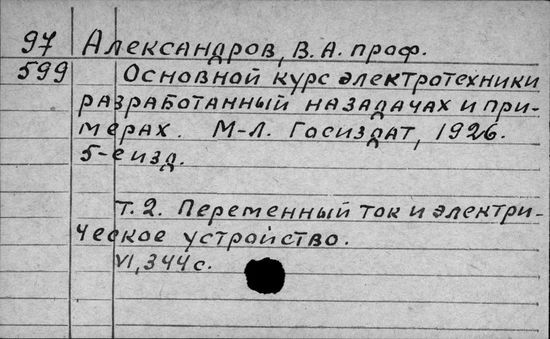 97 Александров, В. А. проф.
599 Основной курс электротехники
разработанный на задачах и при-
мерах. М-Л. Госиздат, 1926.
5-е изд.
т. 2. Переменный ток и электри-
ческое устройство.
VI, 344 с.